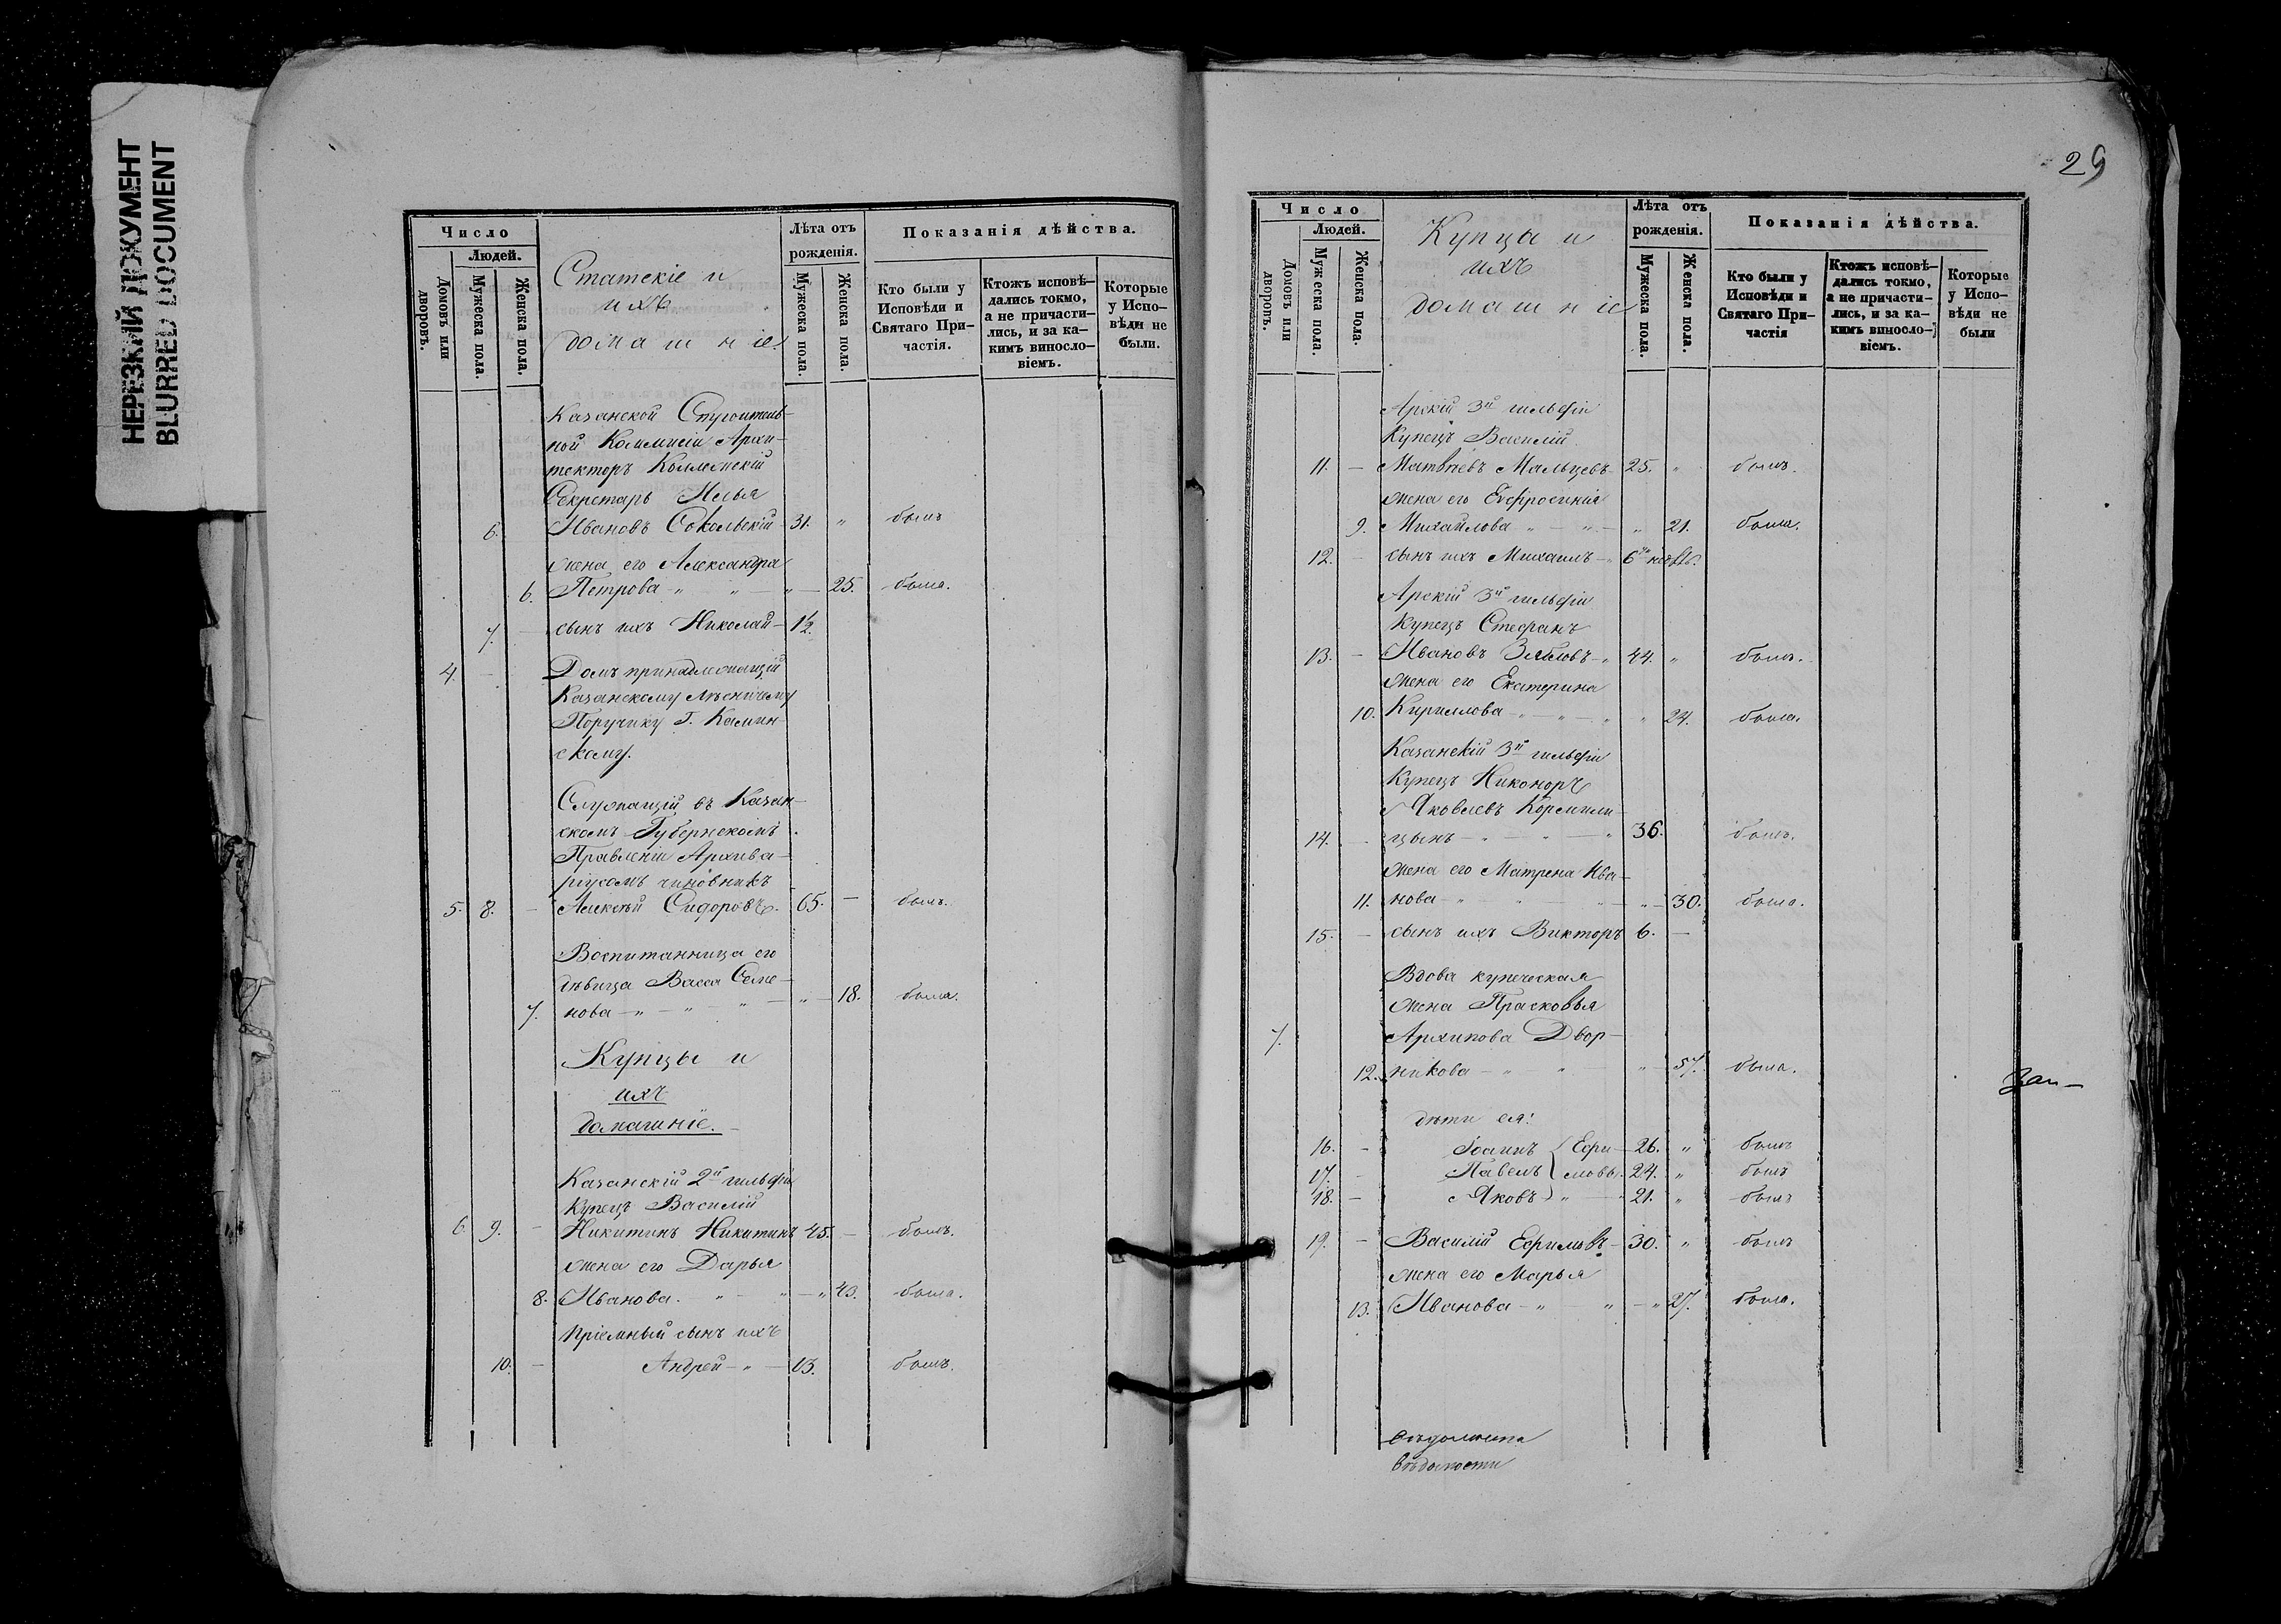 НЕРЕЗКИЙ ДОКУМЕНТ
BLURRED DOCUMENT
Число
Людей.
Домовъ или дворовъ.
Мужеска пола.
Женска пола.
Статскіе и
ихъ
домашніе
Лѣта отъ
рожденія.
Мужеска пола.
Женска пола.
Показанія дѣйства.
Кто были у
Исповѣди и
Святаго При-
частія.
Ктожъ исповѣ-
дались токмо,
а не причасти-
лись, и за ка-
кимъ винословіемъ.
Которые
у Испо-
вѣди не
были.
Казанской Строитель-
ной Коммисіи Архи-
текторъ Коллежскій
Секретарь Илья
6. Ивановъ Сокольскій 31. " былъ
жена его Александра
6. Петрова " " " 25. была.
7. сынъ ихъ Николай 1½.
4. Домъ принадлежащій
Казанскому Лѣсничему
Поручику Г. Камин-
скому.
Служащій въ Казан-
скомъ Губернскомъ
Правленіи Архива-
ріусомъ чиновникъ
5. 8. Алексѣй Сидоровъ. 65. — былъ.
Воспитанница его
дѣвица Васса Семе-
7. нова " " " " 18. была.
Купцы и
ихъ
домашніе.
Казанскій 2й гильдіи
Купецъ Василій
6 9. Никитинъ Никитинъ 45. — былъ.
жена его Дарья
8. Иванова. " " " 43. была.
Пріемный сынъ ихъ
10. Андрей " 13. былъ.
29
Число
Людей.
Домовъ или дворовъ.
Мужеска пола.
Женска пола.
Купцы и
ихъ
домашніе
Лѣта отъ
рожденія.
Мужеска пола.
Женска пола.
Показанія дѣйства.
Кто были у
Исповѣди и
Святаго При-
частія
Ктожъ исповѣ-
дались токмо,
а не причасти-
лись, и за ка-
кимъ винословіемъ.
Которые
у Испо-
вѣди не
были
Арскій 3й гильдіи
Купецъ Василій
11. — Матвѣевъ Мальцевъ 25. " былъ.
жена его Евфросинія
9. Михайлова " " " 21. была.
12. — сынъ ихъ Михаилъ 6
Арскій 3й гильдіи
Купецъ Стефанъ
13. — Ивановъ 44. " былъ.
жена его Екатерина
10. Кириллова " " " " 24. была.
Казанскій 3й гильдіи
Купецъ Никоноръ
Яковлевъ Кормили-
14. цынъ " " " 36. былъ.
жена его Матрена Ива-
11. нова " " " " 30. была.
15. — сынъ ихъ Викторъ 6. —
Вдова купеческая
жена Прасковья
7. Архипова Двор-
12. никова " " " 57. была.
дѣти ея:
16. — Іоаннъ Ефи- 26. " былъ
17. — Павелъ мовы. 24. " былъ
18. — Яковъ " 21. " былъ
19. — Василій Ефимовъ 30. " былъ
жена его Марья
13. Иванова " " " 27. была.
вѣдомости